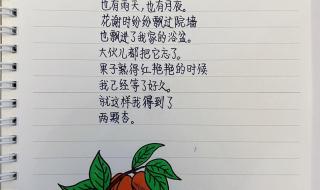 也有雨天，也有月夜。
花谢时纷纷飘过院墙
也飘进了我家的浴盆。
大伙儿都把它忘了。
果子熟得红艳艳的时候
我已经等了好久。
就这样我得到了
两颗杏。